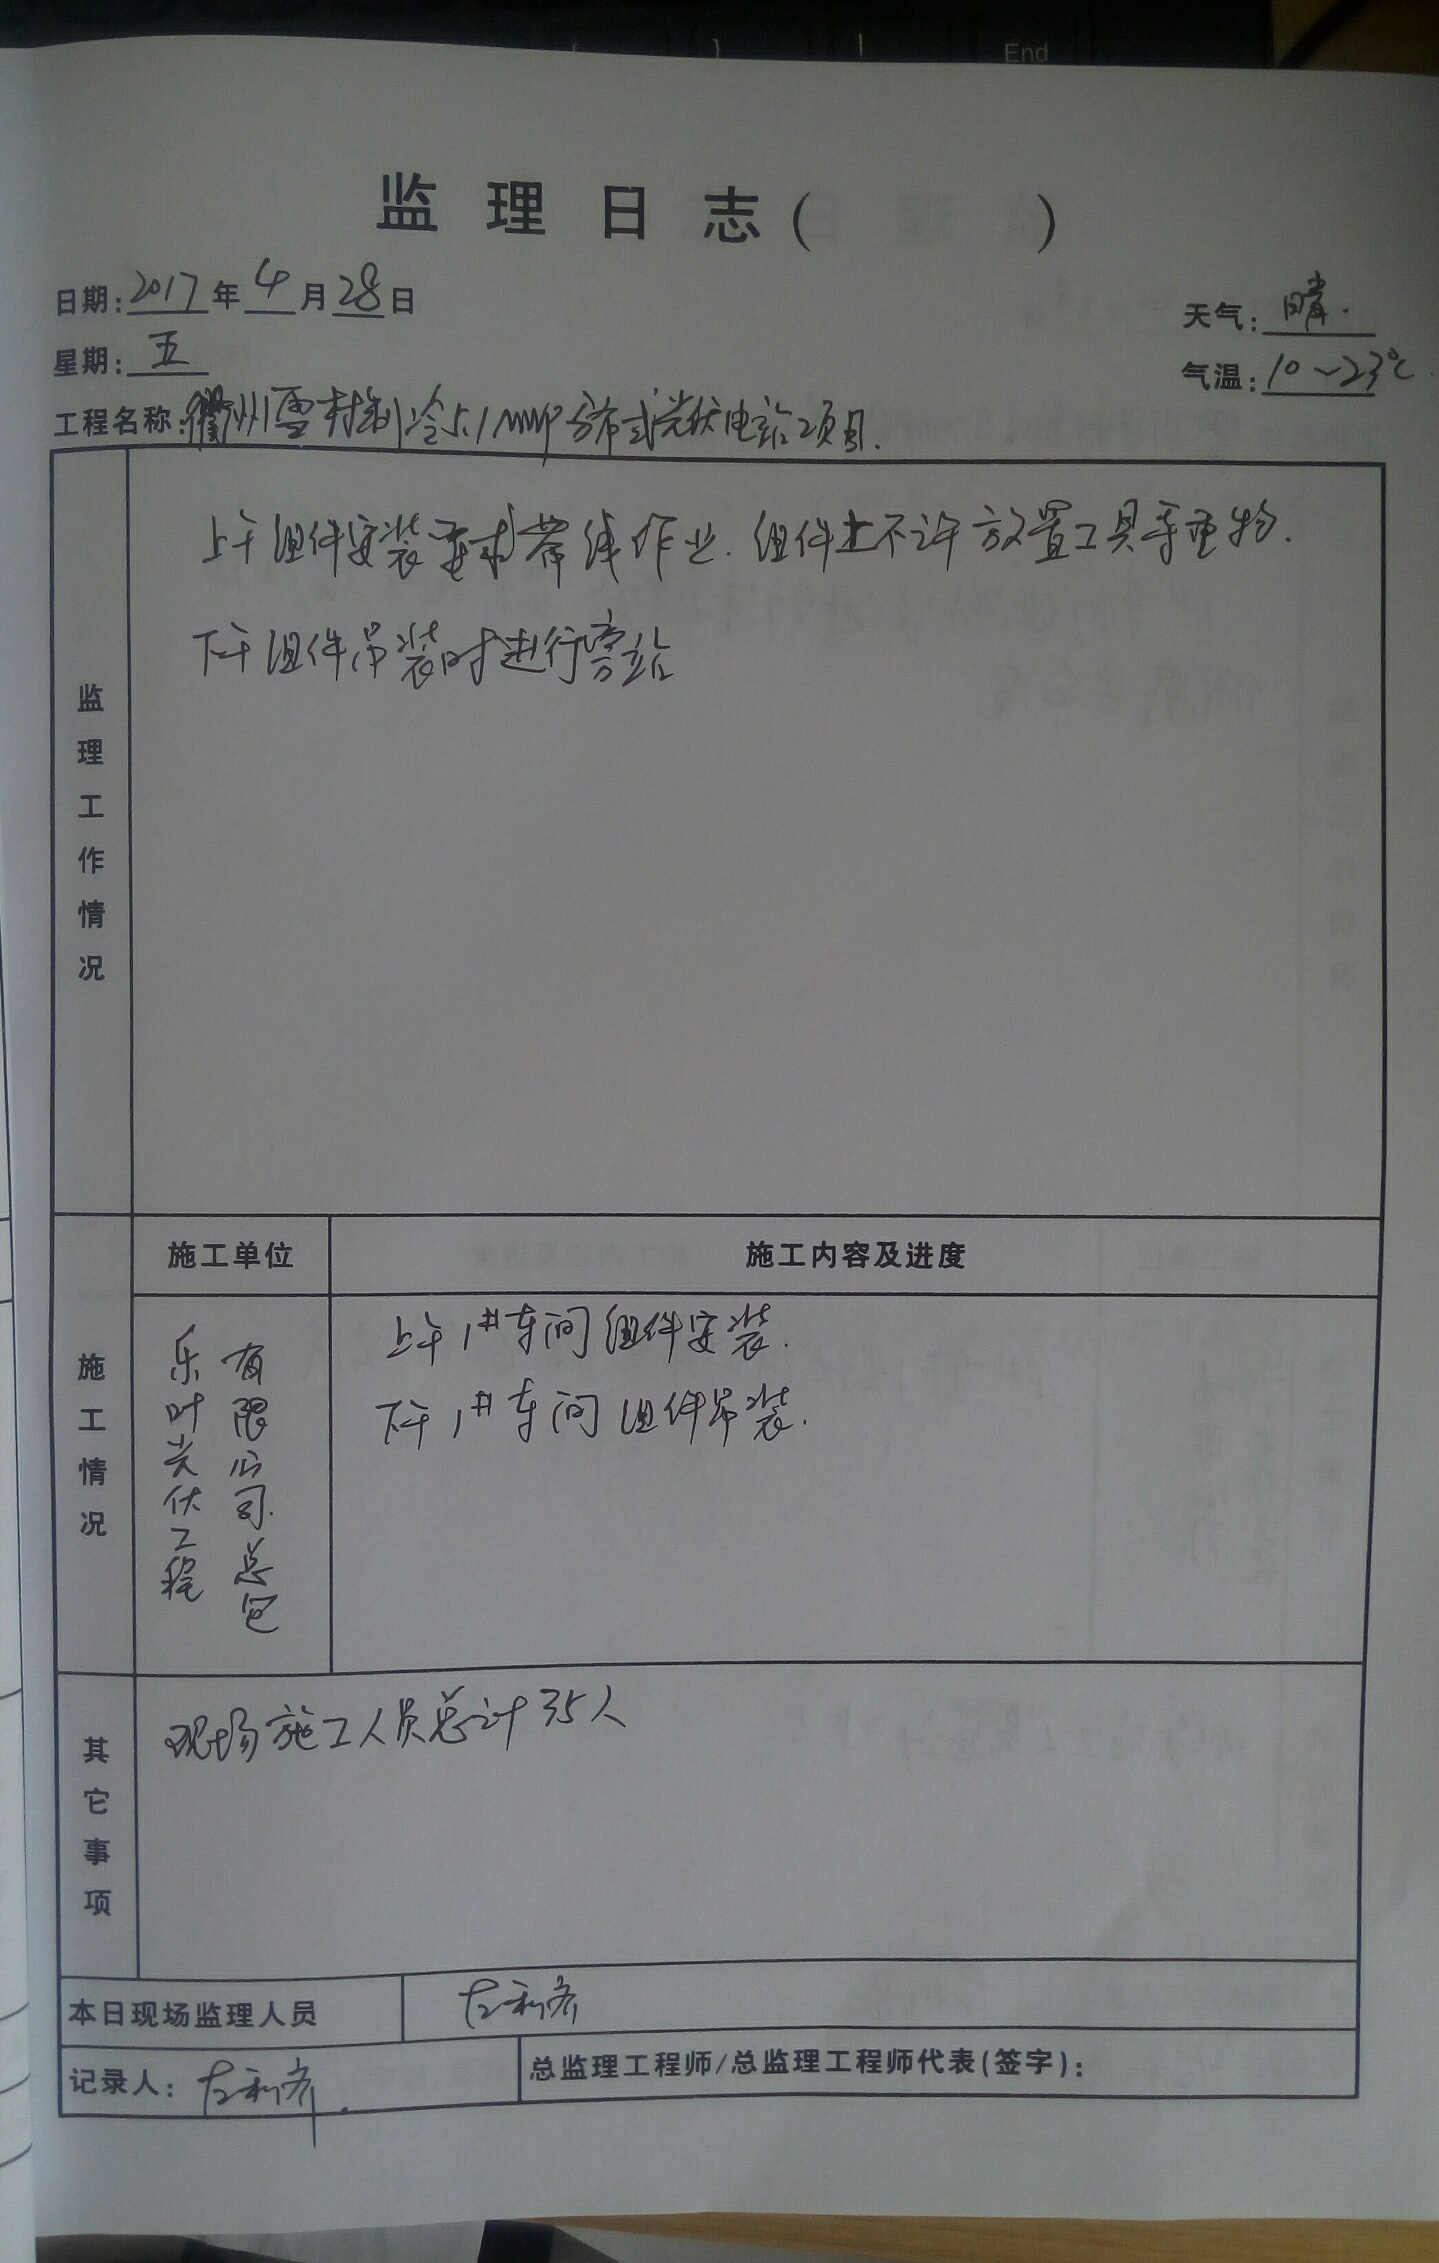 End
监理日志( )
日期:2017年4月28日
天气:晴.
星期:五
气温:10~23℃
工程名称:衢州雪村制冷5.1MWP分布式光伏电站项目.
监理工作情况
上午组件安装要求带线作业.组件上不许放置工具等重物.
下午组件吊装时进行旁站
施工单位
施工内容及进度
施工情况
乐叶光伏工程
有限公司.总包
上午1#车间组件安装.
下午1#车间组件吊装.
其它事项
现场施工人员总计35人
本日现场监理人员
记录人:
总监理工程师/总监理工程师代表(签字):